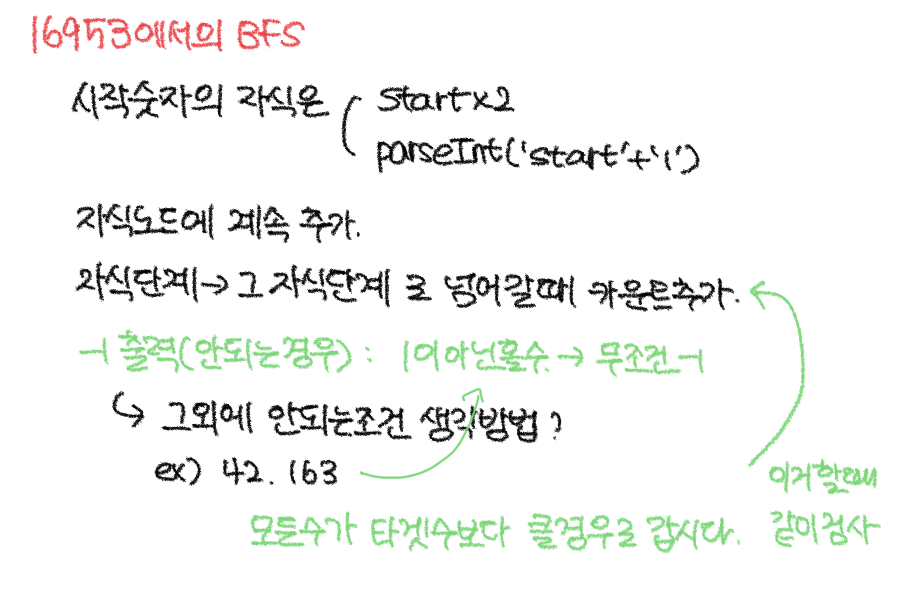 16953에서의 BFS
시작숫자의 자식은 start×2
parseInt('start'+'1')
자식노드에 계속 추가.
자식단계→그 자식단계 로 넘어갈때 카운트추가.
-1 출력(안되는경우) : 1이아닌홀수. → 무조건 -1
그외에 안되는조건 생각방법?
ex) 42. 163
이거할때
같이검사
모든수가 타겟수보다 클경우로 갑시다.